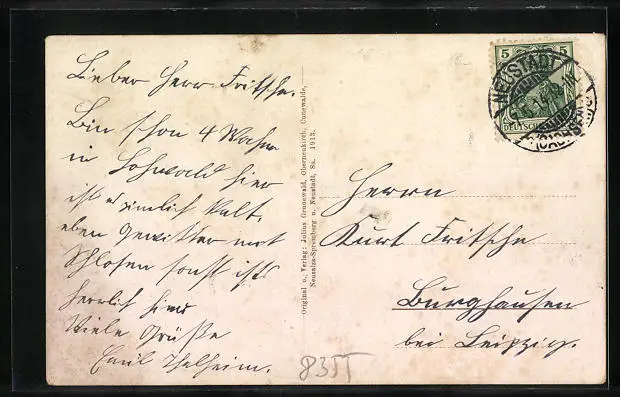 Lieber Herr Fritsche.
Bin schon 4 Wochen
in Hohwald hier
ist es ziemlich kalt,
eben Gewitter mit
Schloßen sonst ist's
herrlich hier
Viele Grüße
Emil Thalheim.
Original u. Verlag: Julius Grunewald, Oberneukirch, Cunewalde,
Neusalza-Spremberg u. Neustadt, Sa. 1913.
5 5
DEUTSCHES
NEUSTADT
(SACHSEN)
Herrn
Kurt Fritsche
Burghausen
bei Leipzig.
835T